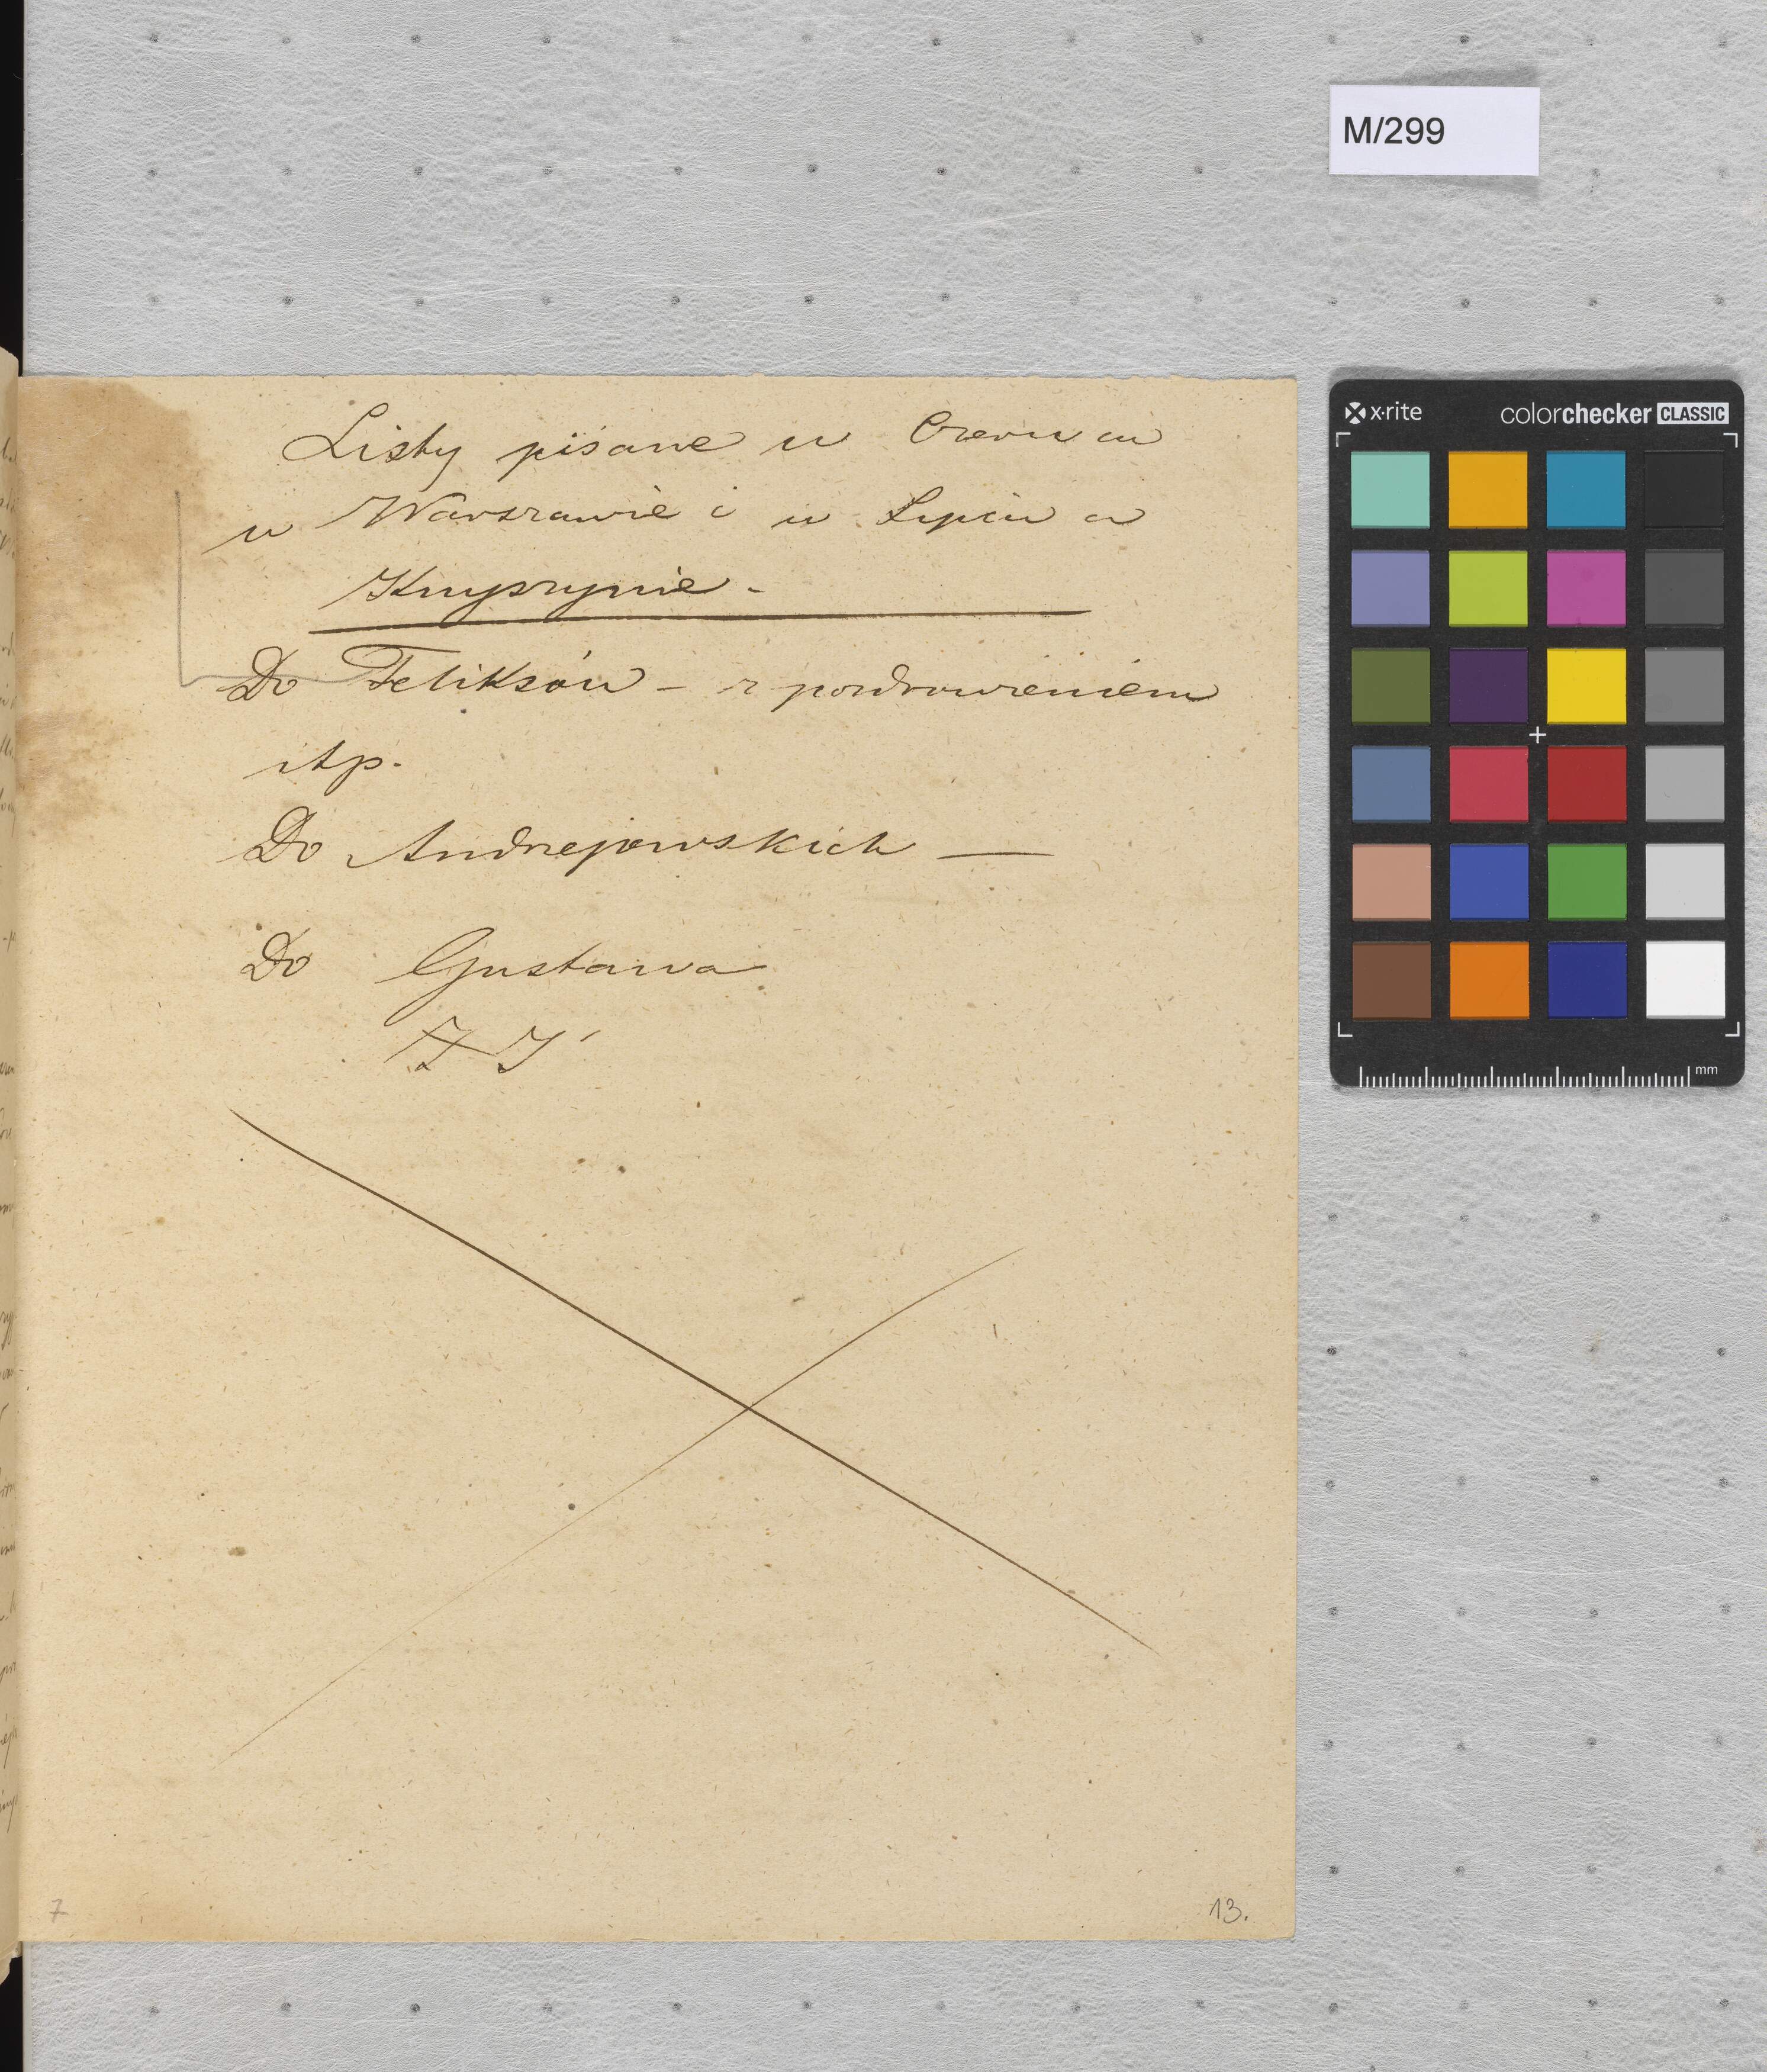 M/299
x·rite
colorchecker CLASSIC
Listy pisane w Czerwcu
w Warszawie i w Lipcu w
Knyszynie -
Do Feliksów - z pozdrowieniem
itp.
Do Andrzejowskich —
Do Gustawa
mm
7
13.